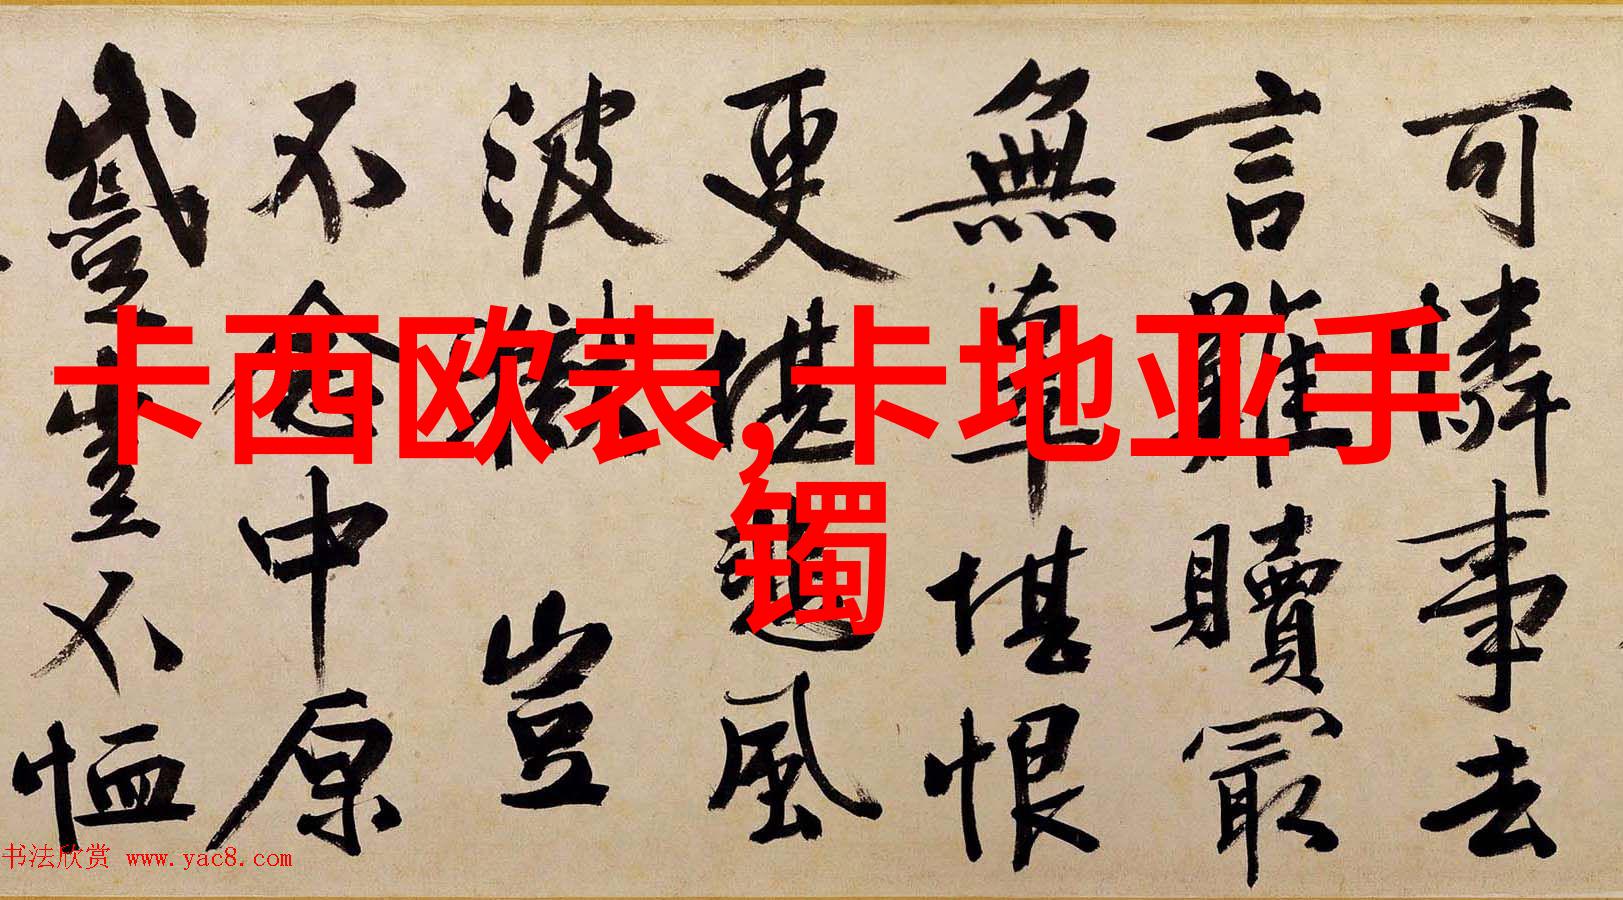 卡西欧表,卡地亚手
镯
可憐事去
言難贖冣
無辜堪恨
更堪風
波獄豈
不念中原
蹙豈不恤
书法欣赏 www.yac8.com